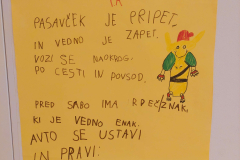 PASAVČEK JE PRIPET,
IN VEDNO JE ZAPET.
VOZI SE NAOKROG,
PO CESTI IN POVSOD.
PRED SABO IMA RDEČ ZNAK,
KI JE VEDNO ENAK.
AVTO SE USTAVI
IN PRAVI: